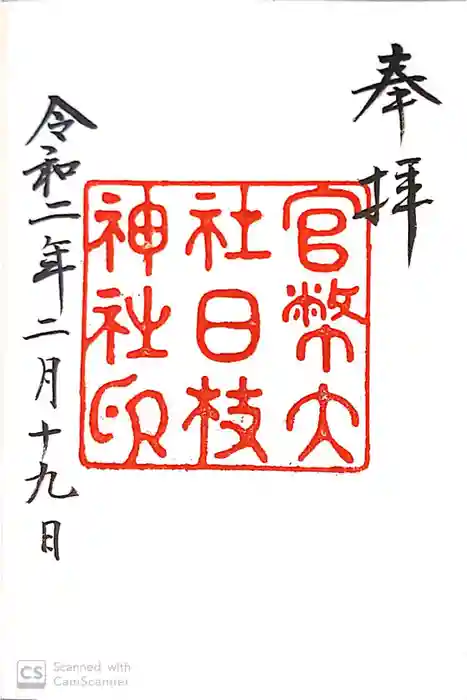 奉拝
官幣大
社日枝
神社印
令和二年二月十九日
CS Scanned with
CamScanner